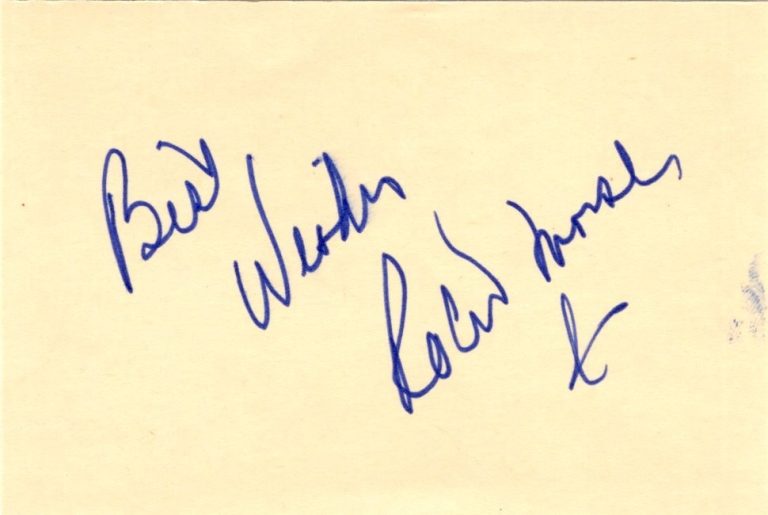 Best Wishes
Robert